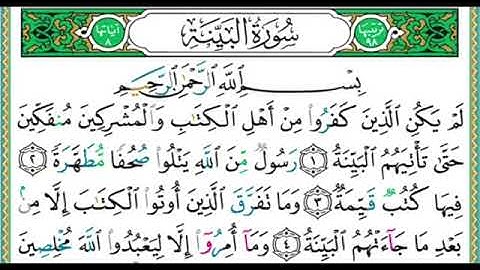 ترتيبها ٩٨ سُورَةُ الْبَيِّنَةِ آياتها ٨
بِسْمِ اللَّهِ الرَّحْمَٰنِ الرَّحِيمِ
لَمْ يَكُنِ الَّذِينَ كَفَرُوا مِنْ أَهْلِ الْكِتَابِ وَالْمُشْرِكِينَ مُنفَكِّينَ
حَتَّىٰ تَأْتِيَهُمُ الْبَيِّنَةُ ١ رَسُولٌ مِّنَ اللَّهِ يَتْلُوا صُحُفًا مُّطَهَّرَةً ٢
فِيهَا كُتُبٌ قَيِّمَةٌ ٣ وَمَا تَفَرَّقَ الَّذِينَ أُوتُوا الْكِتَابَ إِلَّا مِن
بَعْدِ مَا جَاءَتْهُمُ الْبَيِّنَةُ ٤ وَمَا أُمِرُوا إِلَّا لِيَعْبُدُوا اللَّهَ مُخْلِصِينَ